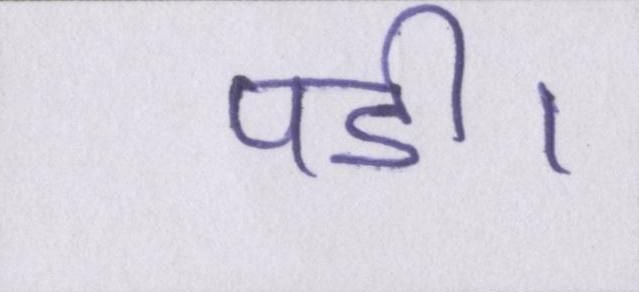 पडी।